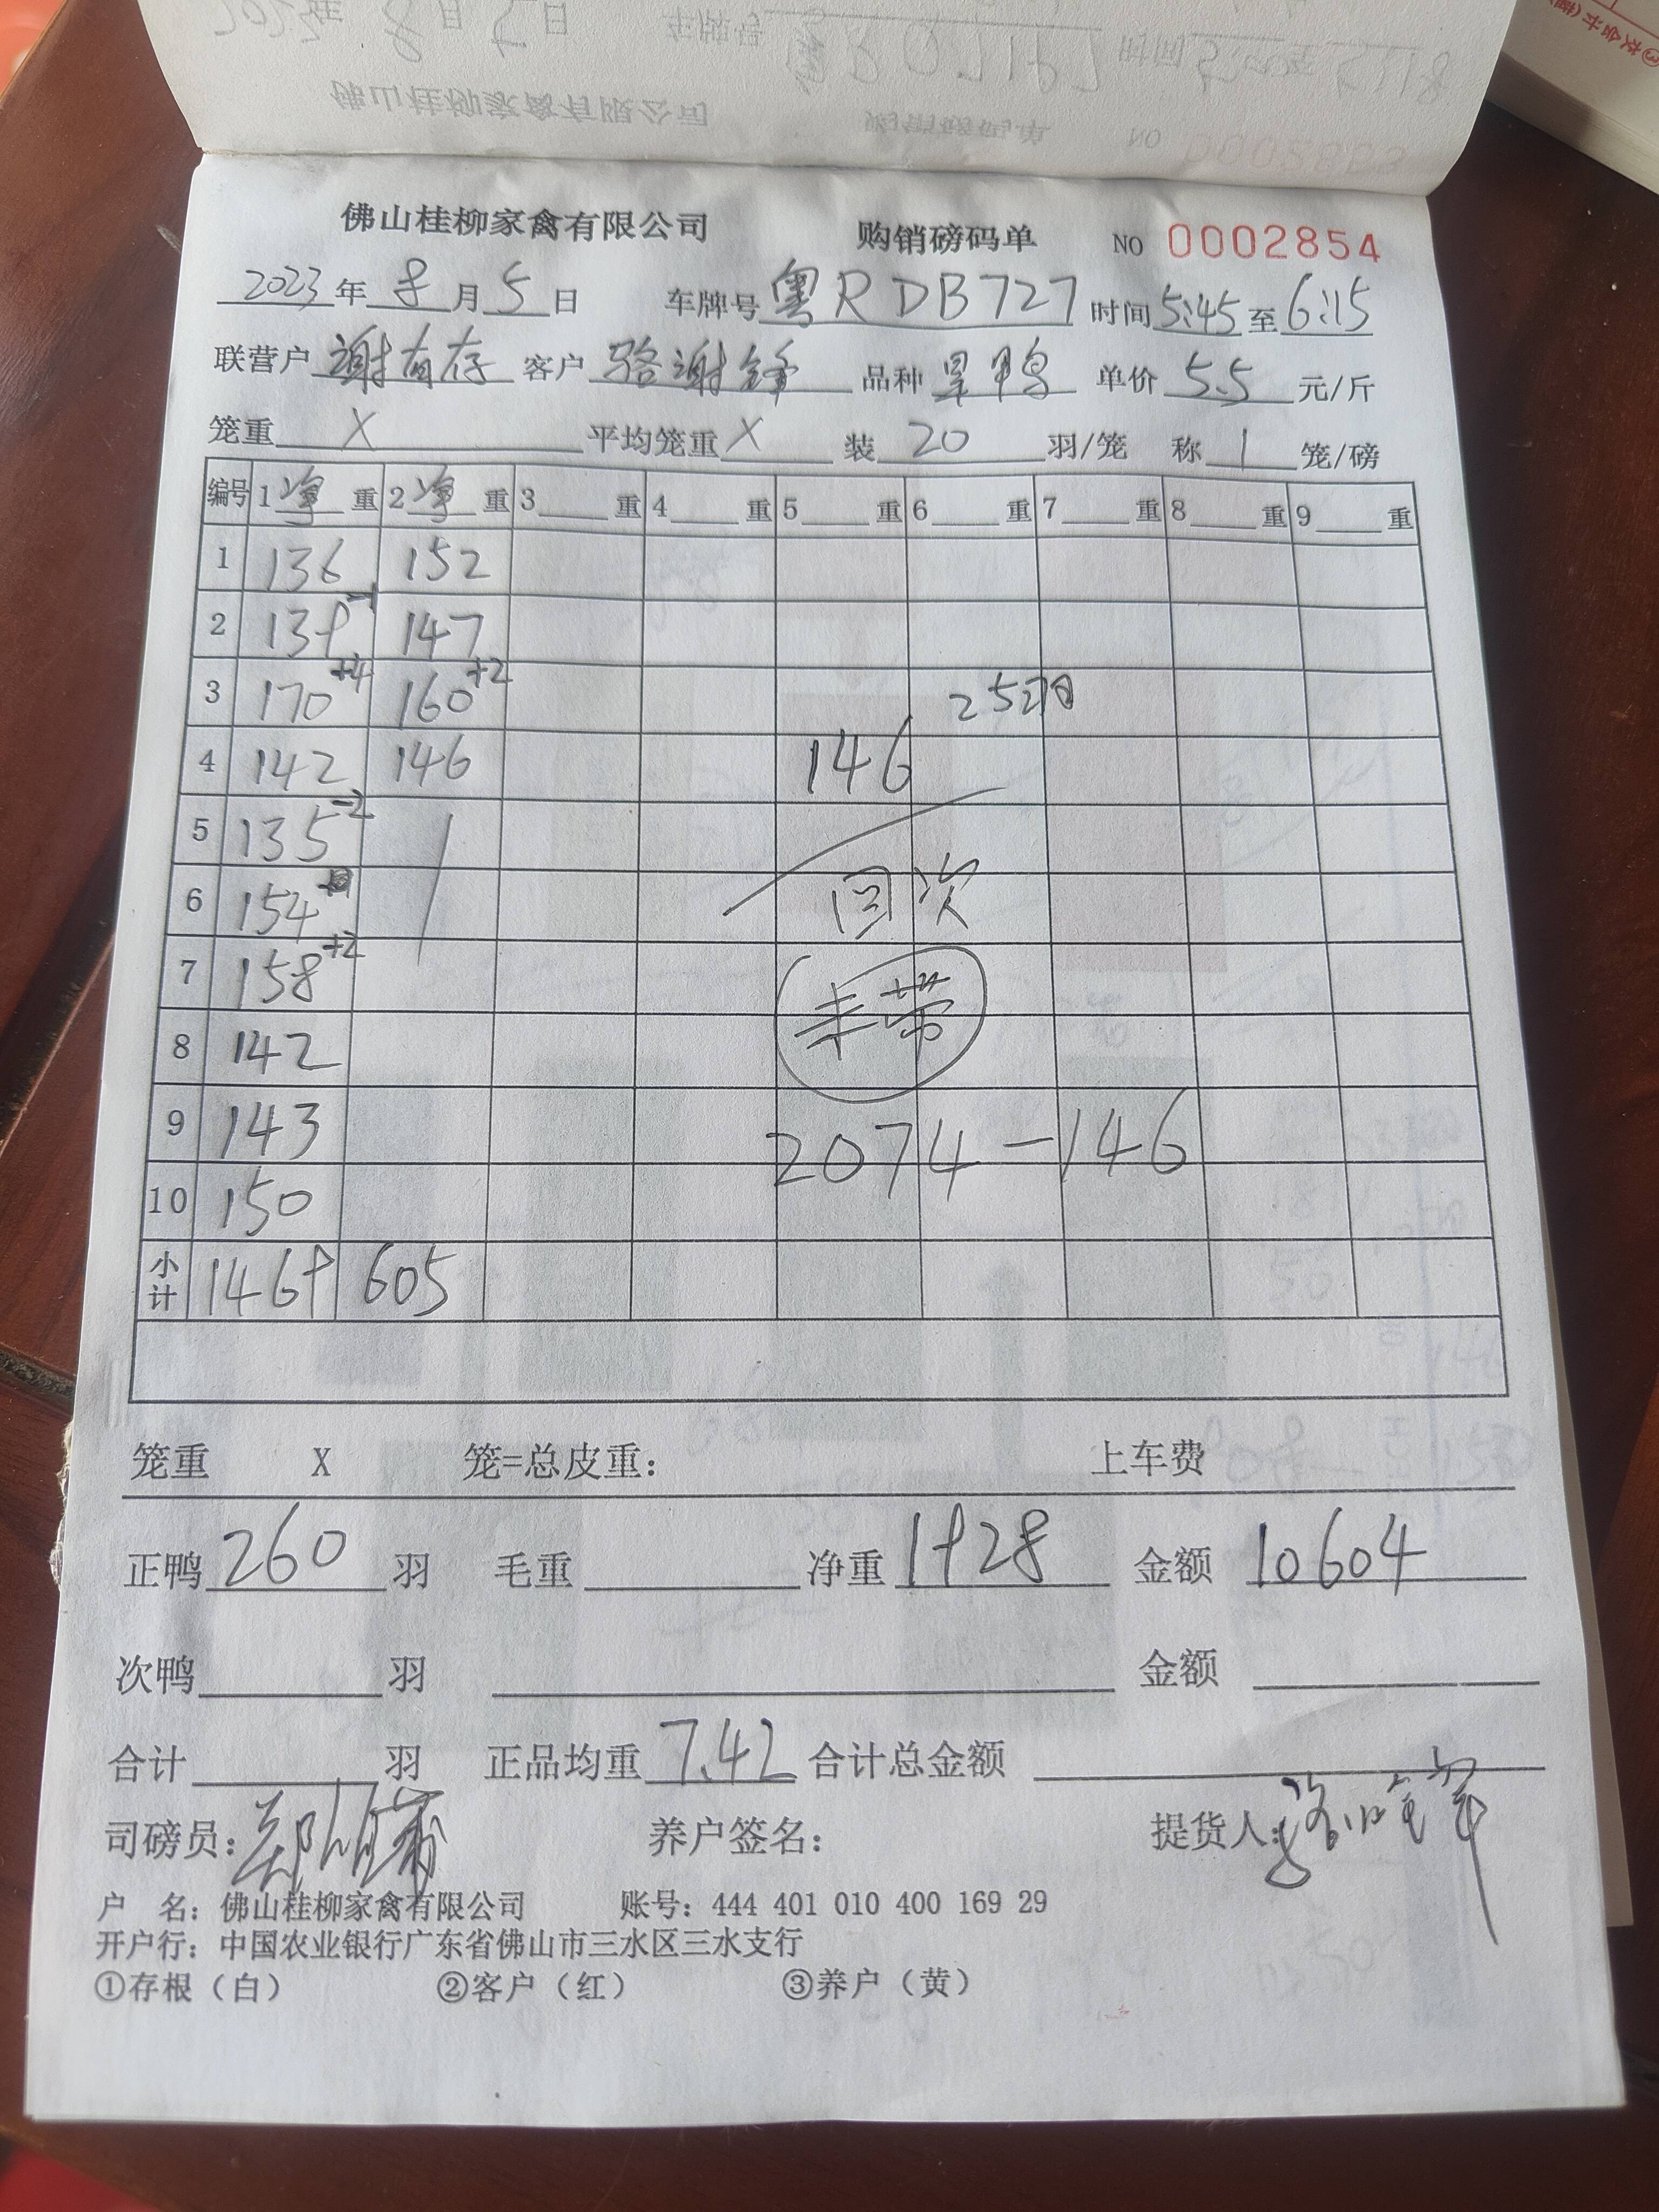 佛山桂柳家禽有限公司 购销磅码单 NO 0002854
2023年8月5日 车牌号 粤RDB727 时间 5:45 至 6:15
联营户 谢有存 客户 骆谢锋 品种 旱鸭 单价 5.5 元/斤
笼重 X 平均笼重 X 装 20 羽/笼 称 1 笼/磅
编号 1净重 2净重 3重 4重 5重 6重 7重 8重 9重
1 136 152
2 139 -1 147
3 170 +4 160 +2 25羽
4 142 146 146
5 135 -2
6 154 回次
7 158 +2 带
8 142
9 143 2074-146
10 150
小计 1469 605
笼重 X 笼=总皮重: 上车费
正鸭 260 羽 毛重 净重 1928 金额 10604
次鸭 羽 金额
合计 羽 正品均重 7.42 合计总金额
司磅员: 养户签名: 提货人:
户 名: 佛山桂柳家禽有限公司 账号: 444 401 010 400 169 29
开户行: 中国农业银行广东省佛山市三水区三水支行
①存根（白） ②客户（红） ③养户（黄）